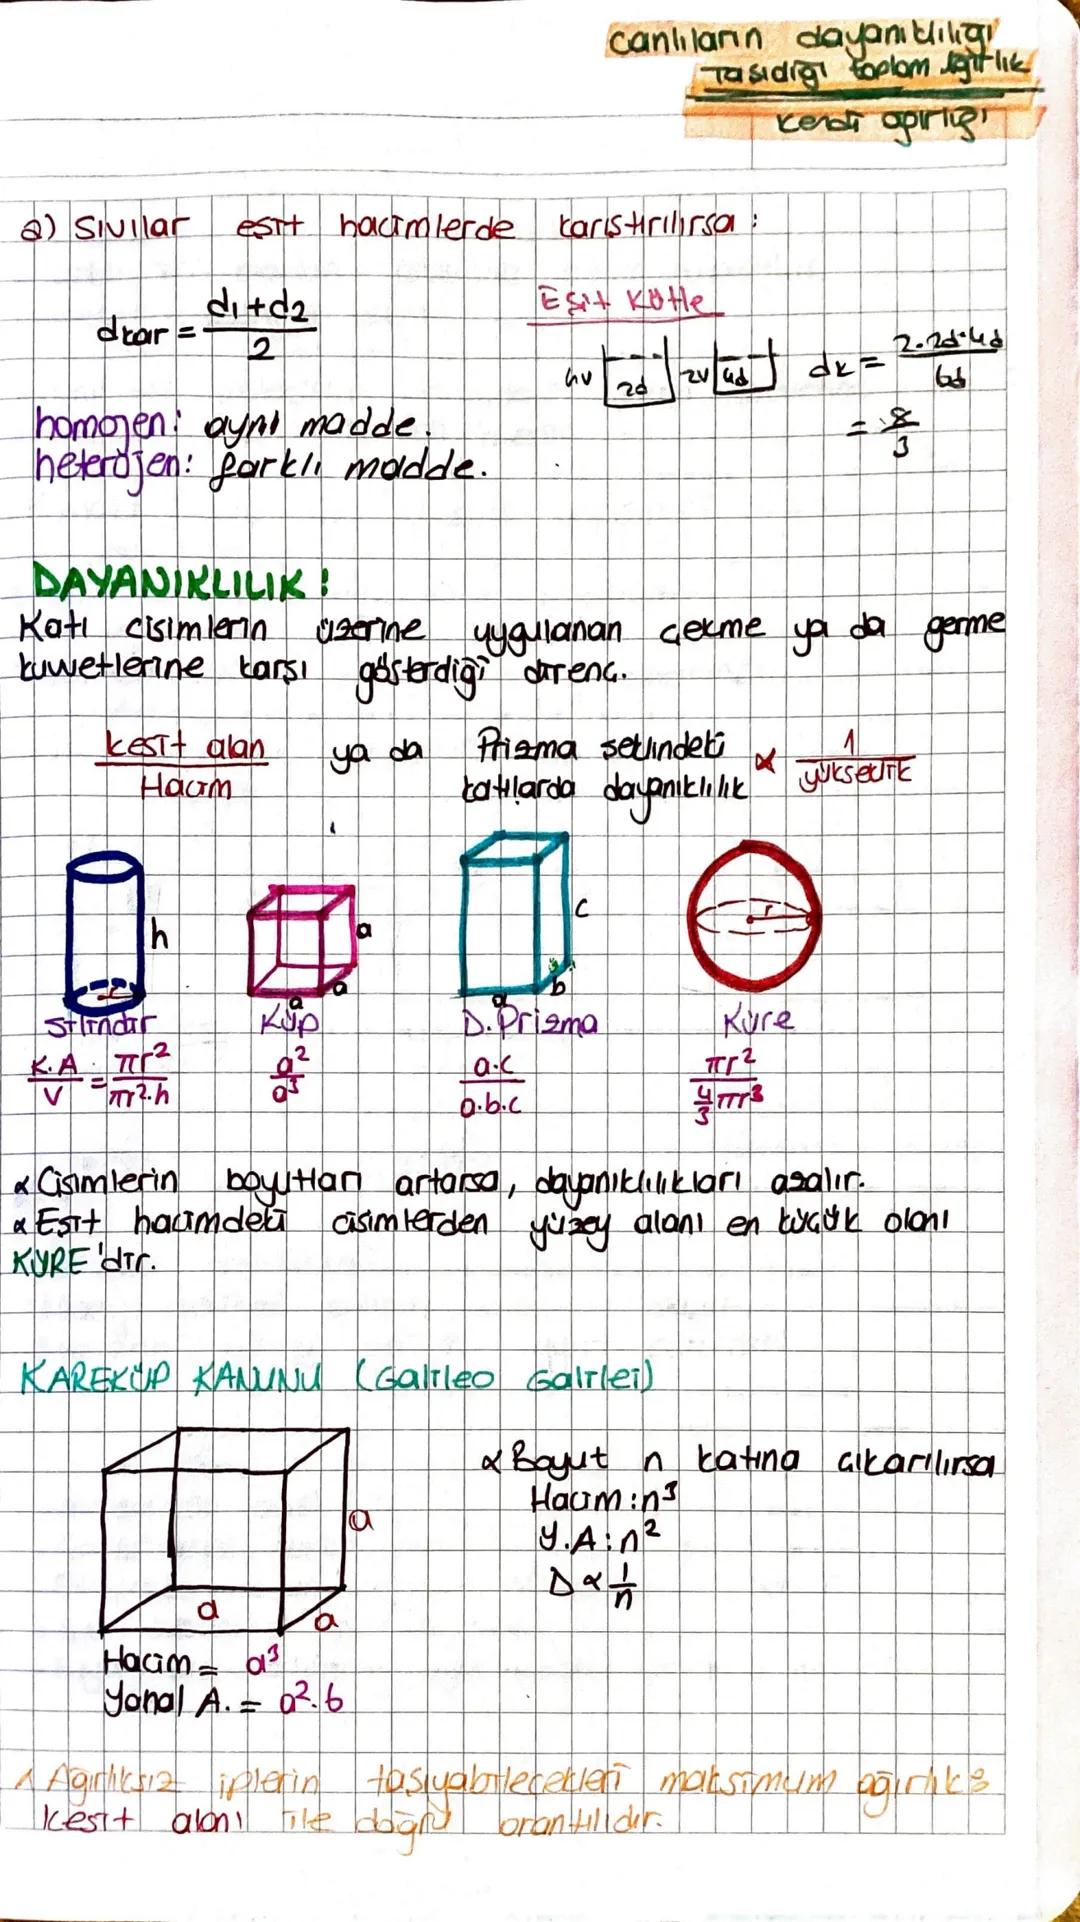 canlıların dayanıklılığı
Tasıdığı toplam ağırlık
kendi ağırlığı
a) Sıvılar eşit hacimlerde karıştırılırsa :
dkar = d1+d2 / 2
Eşit Kütle
4v 2d 2v 4d dk = 2.2d.4d / 6d
= 8/3
homojen: aynı madde.
heterojen: farklı madde.
DAYANIKLILIK !
Katı cisimlerin üzerine uygulanan çekme ya da germe
kuvvetlerine karşı gösterdiği direnç.
kesit alan / Hacim ya da Prizma seklindeki katılarda dayanıklılık ∝ 1 / yükseklik
h r
a a a
c b a
r
Silindir Küp D.Prizma Küre
K.A / V = πr² / πr².h
a² / a³
a.c / a.b.c
πr² / 4/3 πr³
∝ Cisimlerin boyutları artarsa, dayanıklılıkları azalır.
∝ Eşit hacimdeki cisimlerden yüzey alanı en küçük olanı
KÜRE'dir.
KAREKÜP KANUNU (Galileo Galilei)
a a a
∝ Boyut n katına çıkarılırsa
Hacim : n³
Y.A : n²
D ∝ 1/n
Hacim = a³
Yanal A. = a².6
Ağırlıksız iplerin taşıyabilecekleri maksimum ağırlık
kesit alanı ile doğru orantılıdır.